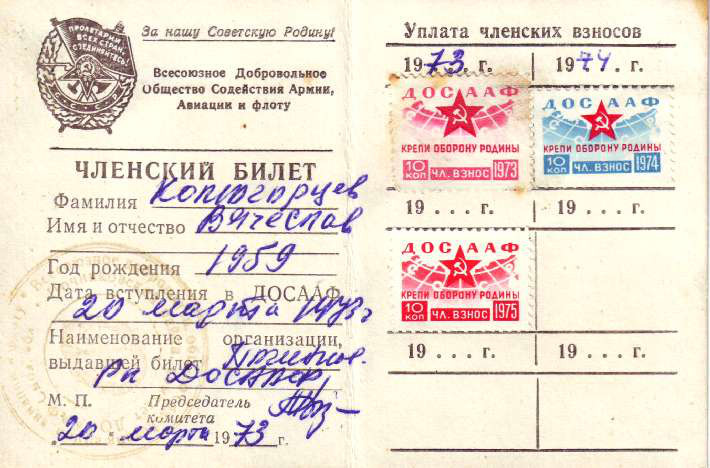 ПРОЛЕТАРИИ
ВСЕХ СТРАН,
СОЕДИНЯЙТЕСЬ!
За нашу Советскую Родину!
Всесоюзное Добровольное
Общество Содействия Армии,
Авиации и флоту
ЧЛЕНСКИЙ БИЛЕТ
Фамилия
Имя и отчество Вячеслав
Год рождения 1959
Дата вступления в ДОСААФ
20 марта 1973 г
Наименование организации,
выдавшей билет
РК ДОСААФ
М. П. Председатель
комитета
20 марта 1973 г.
Уплата членских взносов
1973. г. 1974. г.
ДОСААФ
КРЕПИ ОБОРОНУ РОДИНЫ
10 КОП ЧЛ. ВЗНОС 1973
ДОСААФ
КРЕПИ ОБОРОНУ РОДИНЫ
10 КОП ЧЛ. ВЗНОС 1974
19 . . . г. 19 . . . г.
ДОСААФ
КРЕПИ ОБОРОНУ РОДИНЫ
10 КОП ЧЛ. ВЗНОС 1975
19 . . . г. 19 . . . г.